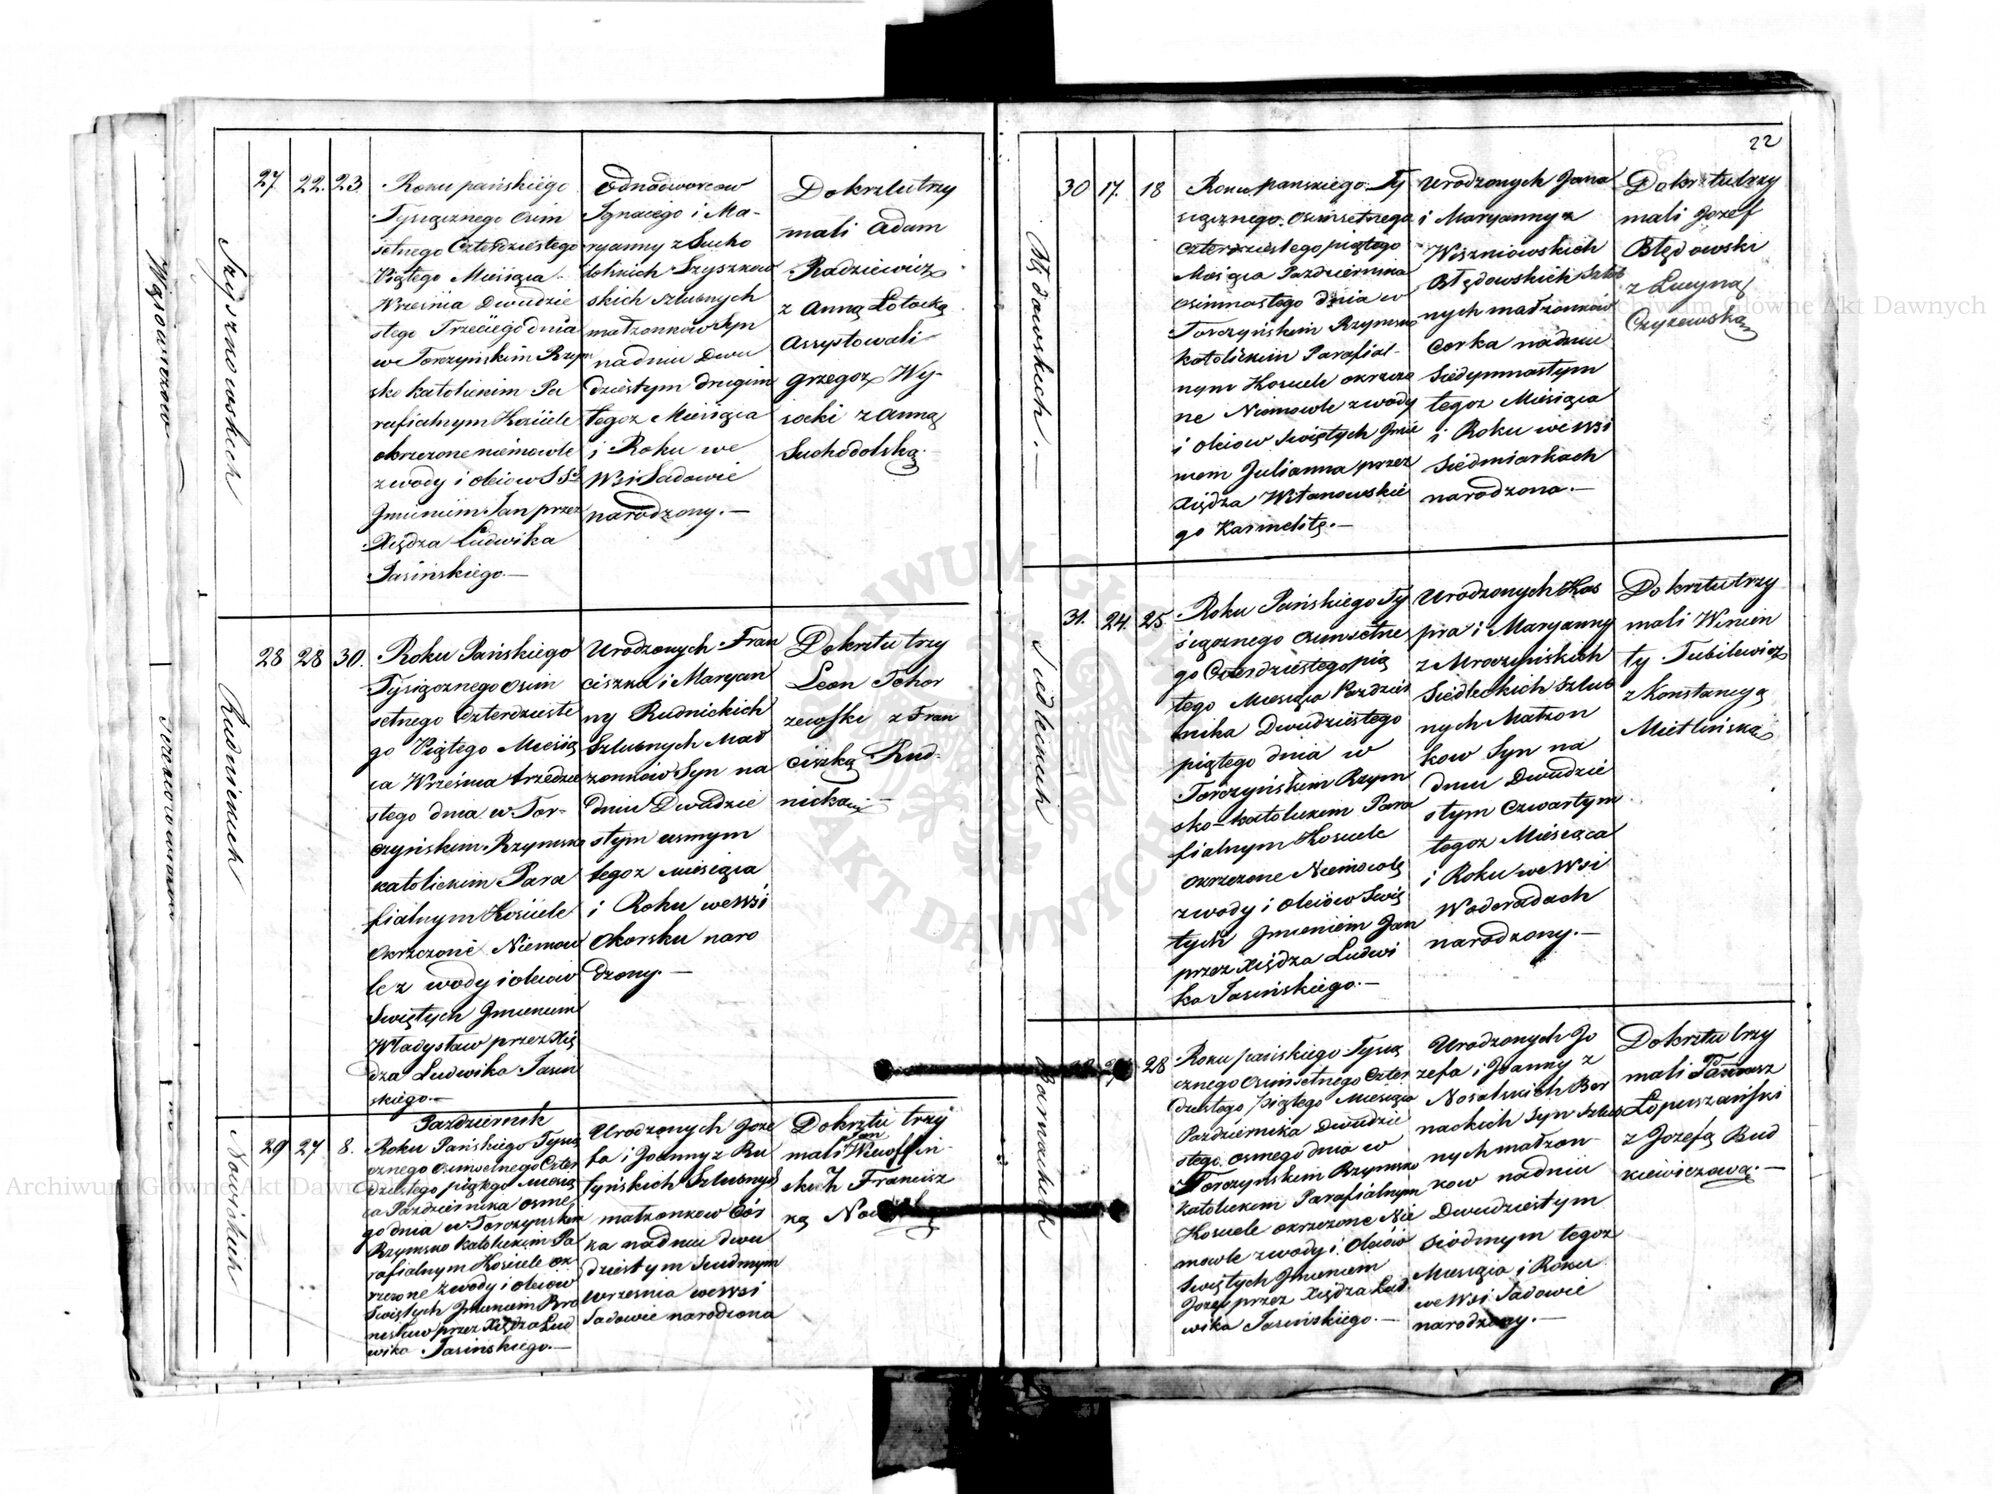 22
Wąsowiczow
Szysznowskich
27 22. 23.
Roku pańskiego
Tysiącznego Ośm
setnego Czterdziestego
Piątego Miesiąca
Września Dwudzie
stego Trzeciego dnia
w Torczyńskim Rzym
sko katolickim Pa
rafialnym Kościele
okrzczone niemowle
z wody i oleiow SSch
Jmieniem Jan przez
Xiędza Ludwika
Jasińskiego.—
Odnadworcow
Ignacego i Ma-
ryanny z Sucho
dolskich Szysznow
skich szlubnych
małzonkow Syn
na dniu Dwu
dziestym drugim
tegoz Miesiąca
i Roku we
Wsi Sadowie
narodzony.—
Do krztu trzy
mali Adam
Radziewicz
z Anną Łotocką
Assystowali
Grzegoz Wy-
socki z Anną
Suchodolską.
Rudnickich
28 28 30.
Roku Pańskiego
Tysiącznego Ośm
setnego Czterdzieste
go Piątego Miesią
ca Września trzydzie
stego dnia w Tor-
czyńskim Rzymsko
katolickim Para
fialnym Kościele
Okrzczone Niemow
le z wody i oleiow
Swiętych Jmieniem
Władysław przez Xię
dza Ludwika Jasiń
skiego.—
Urodzonych Fran
ciszka i Maryan
ny Rudnickich
Szlubnych Mał
zonków Syn na
dniu Dwudzie
stym usmym
tegoz Miesiąca
i Roku we Wsi
Okorsku naro
dzony.—
Do krztu trzy
Leon Tchor
zewski z Fran
ciszką Rud-
nicką
Nowińskich
Październik
29 27 8.
Roku Pańskiego Tysią
cznego Osmsetnego Czter
dziestego piątego Miesią
ca Października Osme
go dnia w Torczyńskim
Rzymsko katolickim Pa
rafialnym Kościele ok
rzczone z wody i oleiow
Swiętych Jmieniem Bro
nisław przez Xiędza Lud
wika Jasińskiego.—
Urodzonych Joze
fa i Joanny z Ru
tyńskich Szlubnych
małzonkow Cór
ka na dniu dwu
dziestym siudmym
Września we Wsi
Sadowie narodzona
Do krztu trzy
Jan
mali
Francisz
ką
Błędowskich.—
30 17. 18
Roku pańskiego Ty
siącznego Osmsetnego
Czterdziestego piątego
Miesiąca Października
Osimnastego dnia w
Torczyńskim Rzymsko
katolickim Parafial-
nym Kosciele okrzczo
ne Niemowle z wody
i Oleiow Swiętych Jmie
niem Julianna przez
Xiędza Witanowskie
go Karmelitę.—
Urodzonych Jana
i Maryanny z
Wiszniowskich
Błędowskich Szlub
nych małzonkow
Corka na dniu
Siedymnastym
tegoz Miesiąca
i Roku we Wsi
Siedmiarkach
narodzona.—
Do krztu trzy
mali Jozef
Błędowski
z Lucyną
Czyzewską
Siedleckich
31. 24. 25
Roku Pańskiego Ty
siącznego Osmsetne
go Czterdziestego pią
tego Miesiąca Paździer
nika Dwudziestego
piątego dnia w
Torczyńskim Rzym
sko-katolickim Para
fialnym Kosciele
okrzczone Niemowlę
z wody i Oleiów Swię
tych Jmieniem Jan
przez Xiędza Ludwi
ka Jasińskiego.—
Urodzonych Kas
pra i Maryanny
z Mroczyńskich
Siedleckich Szlub
nych Małzon
kow Syn na
dniu Dwudzie
stym Czwartym
tegoz Miesiąca
i Roku we Wsi
Woderadach
narodzony.—
Do krztu trzy
mali Wincen
ty Tubilewicz
z Konstancyą
Mietlińską
Bernackich
28
Roku pańskiego Tysią
cznego Osmsetnego Czter
dziestego piątego Miesiąca
Października Dwudzie
stego Osmego dnia w
Torczyńskim Rzymsko
katolickim Parafialnym
Kosciele okrzczone Nie
mowle z wody i Oleiów
Swiętych Jmieniem
Jozef przez Xiędza Lud
wika Jasińskiego.—
Urodzonych Jo
zefa i Joanny z
Nosalskich Ber
nackich Syn Szlub
nych małzon-
kow na dniu
Dwudziestym
siódmym tegoz
Miesiąca i Roku
we Wsi Sadowie
narodzony.—
Do krztu trzy
mali Tomasz
Łopuszański
z Jozefą Bud
kiewiczową.—
Archiwum Główne Akt Dawnych
Archiwum Główne Akt Dawnych
ARCHIWUM GŁÓWNE AKT DAWNYCH